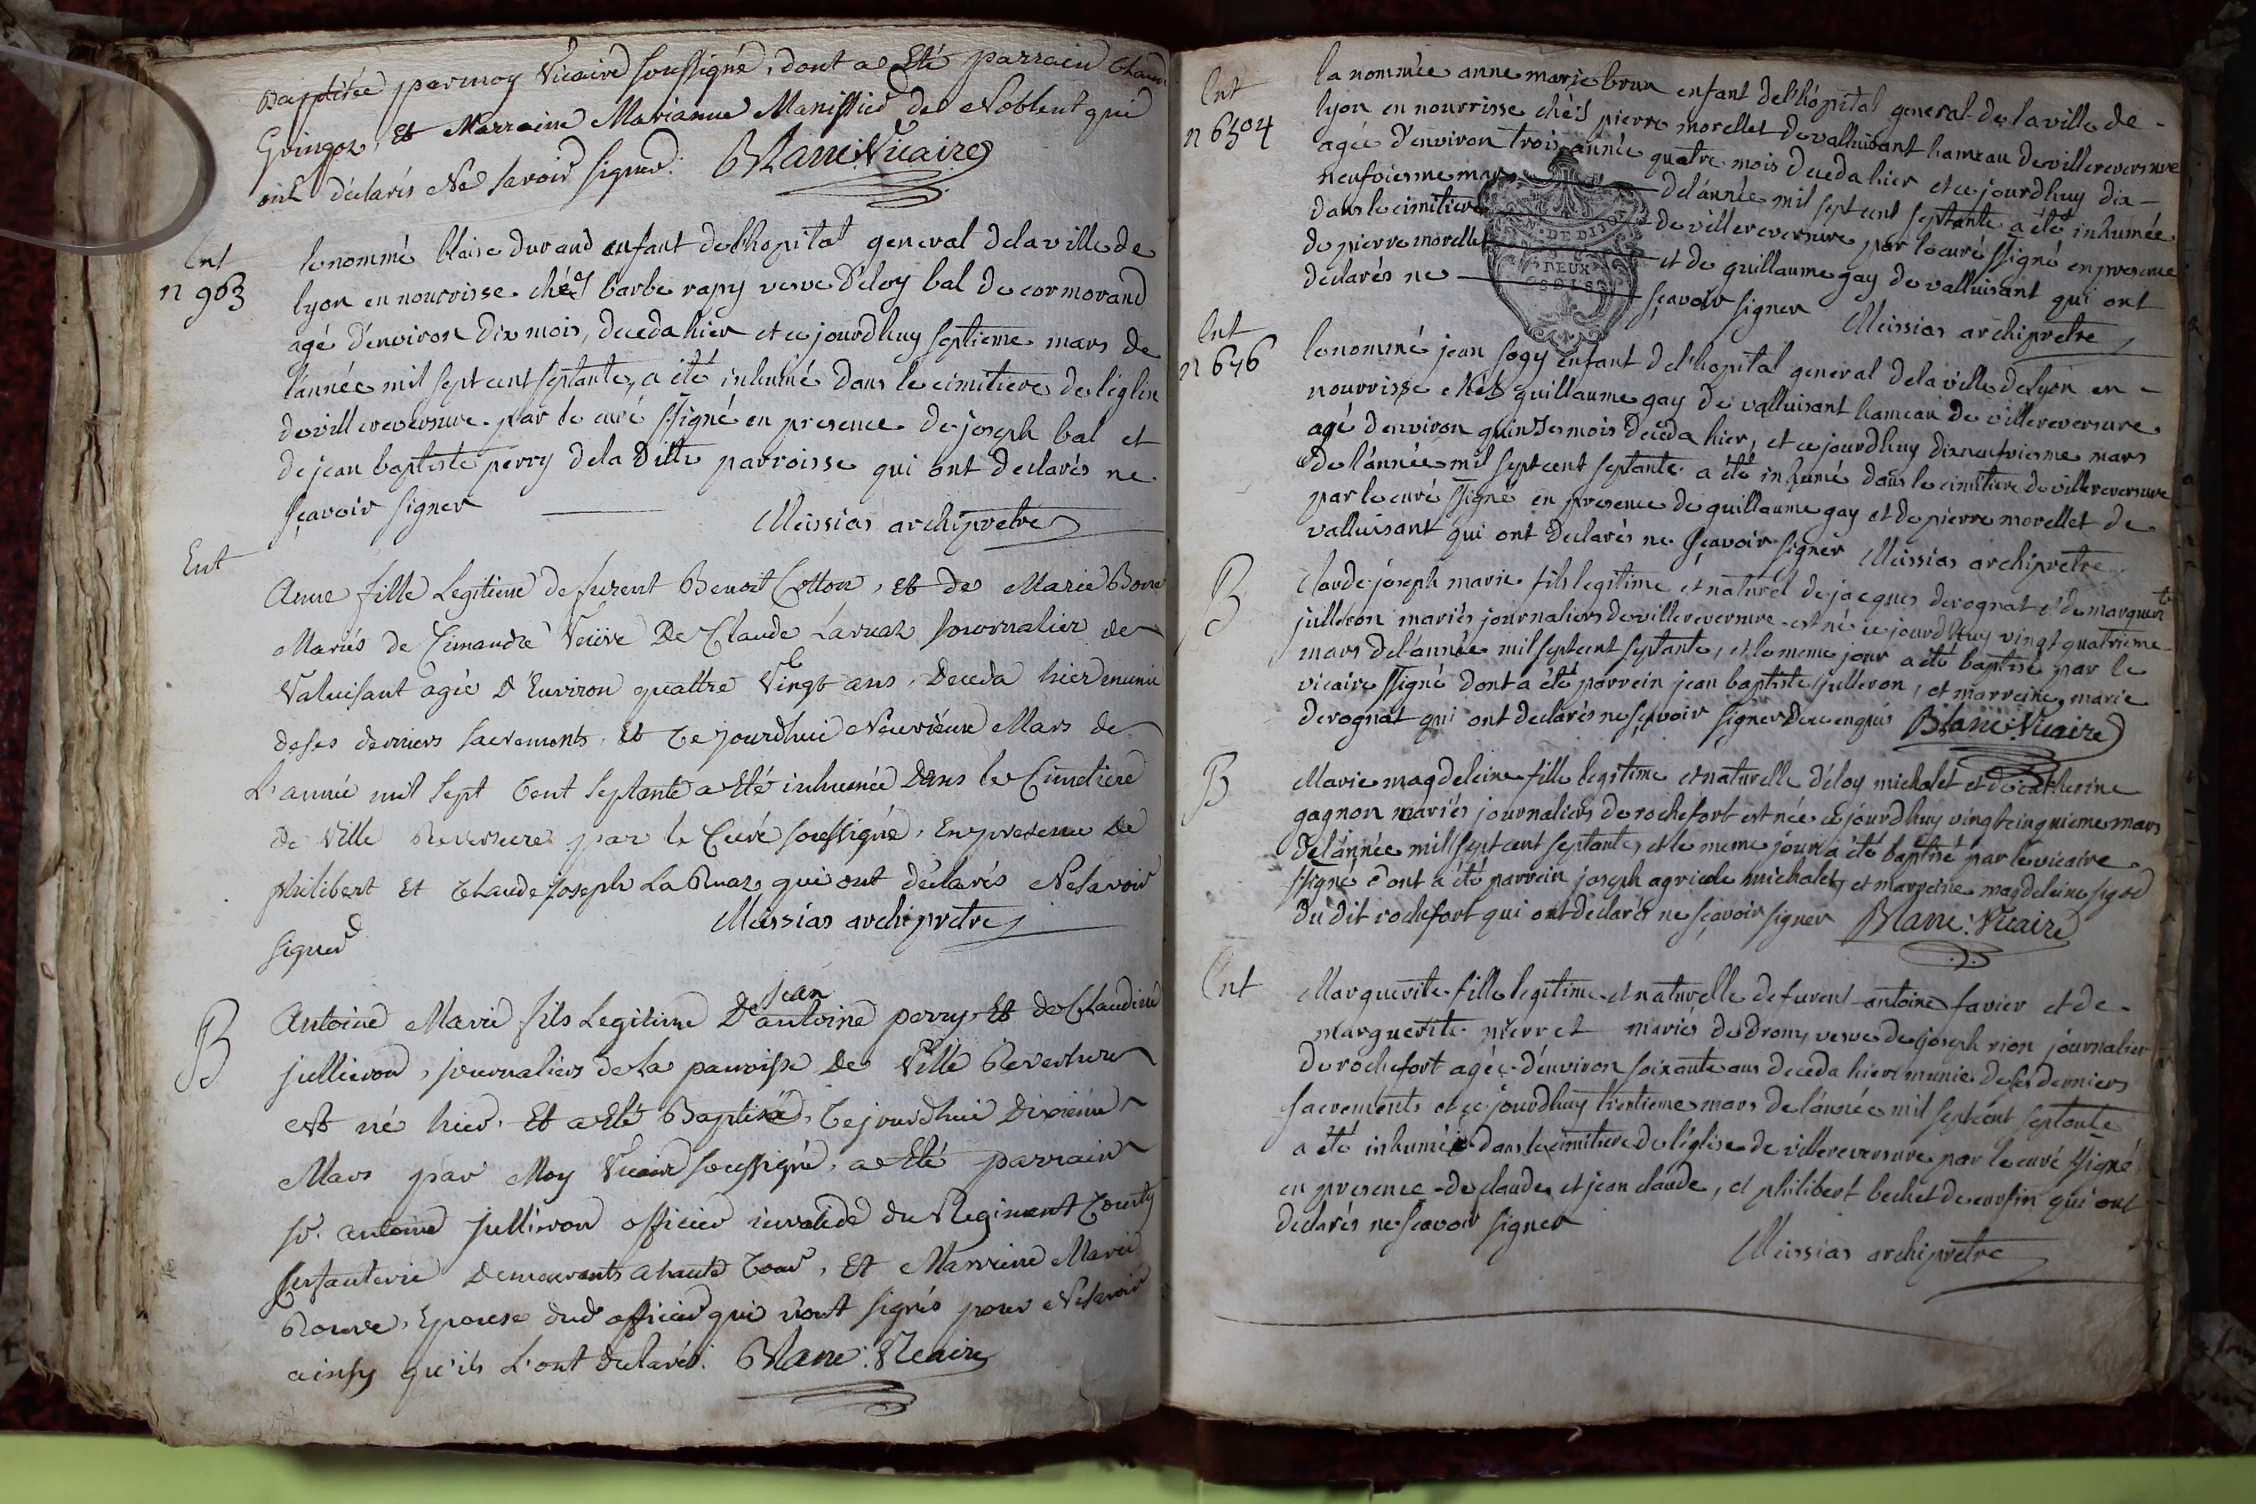 Baptisée par moy Vicaire soussigné, dont a Eté parrain Claude
Guingoz, Et Marraine Marianne Manissier de Noblent qui
ont déclarés Ne savoir signer. Blanc: Vicaire
Ent
n 903
le nommé blaise durand enfant de lhopital general de la ville de
lyon en nourrisse chés barbe rapy veuve d'eloy bal de cormorand
agé d'environ dix mois, deceda hier et ce jourdhuy septieme mars de
l'année mil sept cent septante, a été inhumé dans le cimitiere de l'église
de villereversure par le curé ssigné en presence de joseph bal et
de jean baptiste perry de la ditte parroisse qui ont declarés ne
sçavoir signer
Meissias archipretre
Ent
Anne fille Legitime de furent Benoit Cotton, Et de Marie Bone
Mariés de Cimandre Veüve De Claude Laruaz journalier de
Valuisant agée D'Environ quattre Vingt ans, Deceda hier munie
de ses derniers sacrements, Et Ce jourdhui Neuvième Mars de
L'année mil sept Cent septante a Eté inhumée Dans le Cimetiere
De Ville Reversure par le Curé soussigné, En presence De
philibert Et Claude Joseph La Ruaz qui ont déclarés Ne savoir
signer
Meissias archiprêtre
B
Antoine Marie fils Legitime D'antoine perry Et de Claudine
jean
jullieron, journaliers de La parroisse De Ville Reversure
est né hier, Et a Eté Baptisé, Ce jourdhui Dixieme
Mars par Moy Vicaire soussigné, a Eté parrain
sr. antoine jullieron officier invalide du Regiment County
Infanterie Demeurants a haute Cour, Et Marraine Marie
Rouve, Epouse dud officier qui n'ont signés pour Ne savoir
ainsy qu'ils L'ont declarés. Blanc: Vicaire
Ent
n 6504
la nommée anne marie brun enfant de l'hôpital general de la ville de
lyon en nourrisse chés pierre morellet de valluisant hameau de villereversure
agée d'environ trois année quatre mois deceda hier et ce jourdhuy dix
neufviesme mars de l'année mil sept cent septante a été inhumée
dans le cimitiere de villereversure par le curé ssigné en presence
de pierre morellet et de guillaume gay de valluisant qui ont
declarés ne sçavoir signer Meissias archiprêtre
DEUX
Ent
n 676
le nommé jean sogy enfant de l'hopital general de la ville de lyon en
nourrisse chés guillaume gay de valluisant hameau de villereversure
agé d'environ quinse mois deceda hier, et ce jourdhuy dixneufviesme mars
de l'année mil sept cent septante a été inhumé dans le cimitiere de villereversure
par le curé ssigné en presence de guillaume gay et de pierre morellet de
valluisant qui ont declarés ne sçavoir signer Meissias archiprêtre
B
Claude joseph marie fils legitime et naturel de jacques derognat et de marguerite
julleron mariés journaliers de villereversure est né ce jourdhuy vingt quatrieme
mars de l'année mil sept cent septante, et le meme jour a été baptisé par le
vicaire ssigné dont a été parrein jean baptiste julleron, et marreine, marie
derognat qui ont declarés ne sçavoir signer de ce enquis Blanc: Vicaire
B
Marie magdeleine fille legitime et naturelle d'eloy michalet et de catherine
gagnon mariés journaliers de rochefort est née ce jourdhuy vingt cinquieme mars
de l'année mil sept cent septante, et le meme jour a été baptisé par le vicaire
ssigné dont a été parrein joseph agricole michalet, et marreine magdeleine
du dit rochefort qui ont declarés ne sçavoir signer Blanc: Vicaire
Ent
Marguerite fille legitime et naturelle de furent antoine favier et de
marguerite mariés de drom, veuve de joseph rion journalier
de rochefort agée d'environ soixante ans deceda hier munie de ses derniers
sacrements et ce jourdhuy trentieme mars de l'année mil sept cent septante
a été inhumée dans le cimitiere de l'église de villereversure par le curé ssigné
en presence de claude, et jean claude, et philibert bechet de corsin qui ont
declarés ne sçavoir signer
Meissias archiprêtre